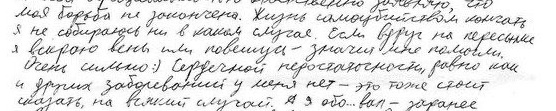 моя борьба не закончена. Жизнь самоубийством кончать
я не собираюсь ни в каком случае. Если вдруг на пересылке
я вскрою вены или повешусь – значит мне помогли.
Очень сильно:) Сердечной недостаточности, равно как
и других заболеваний у меня нет – это тоже стоит
сказать, на всякий случай. А я – заранее